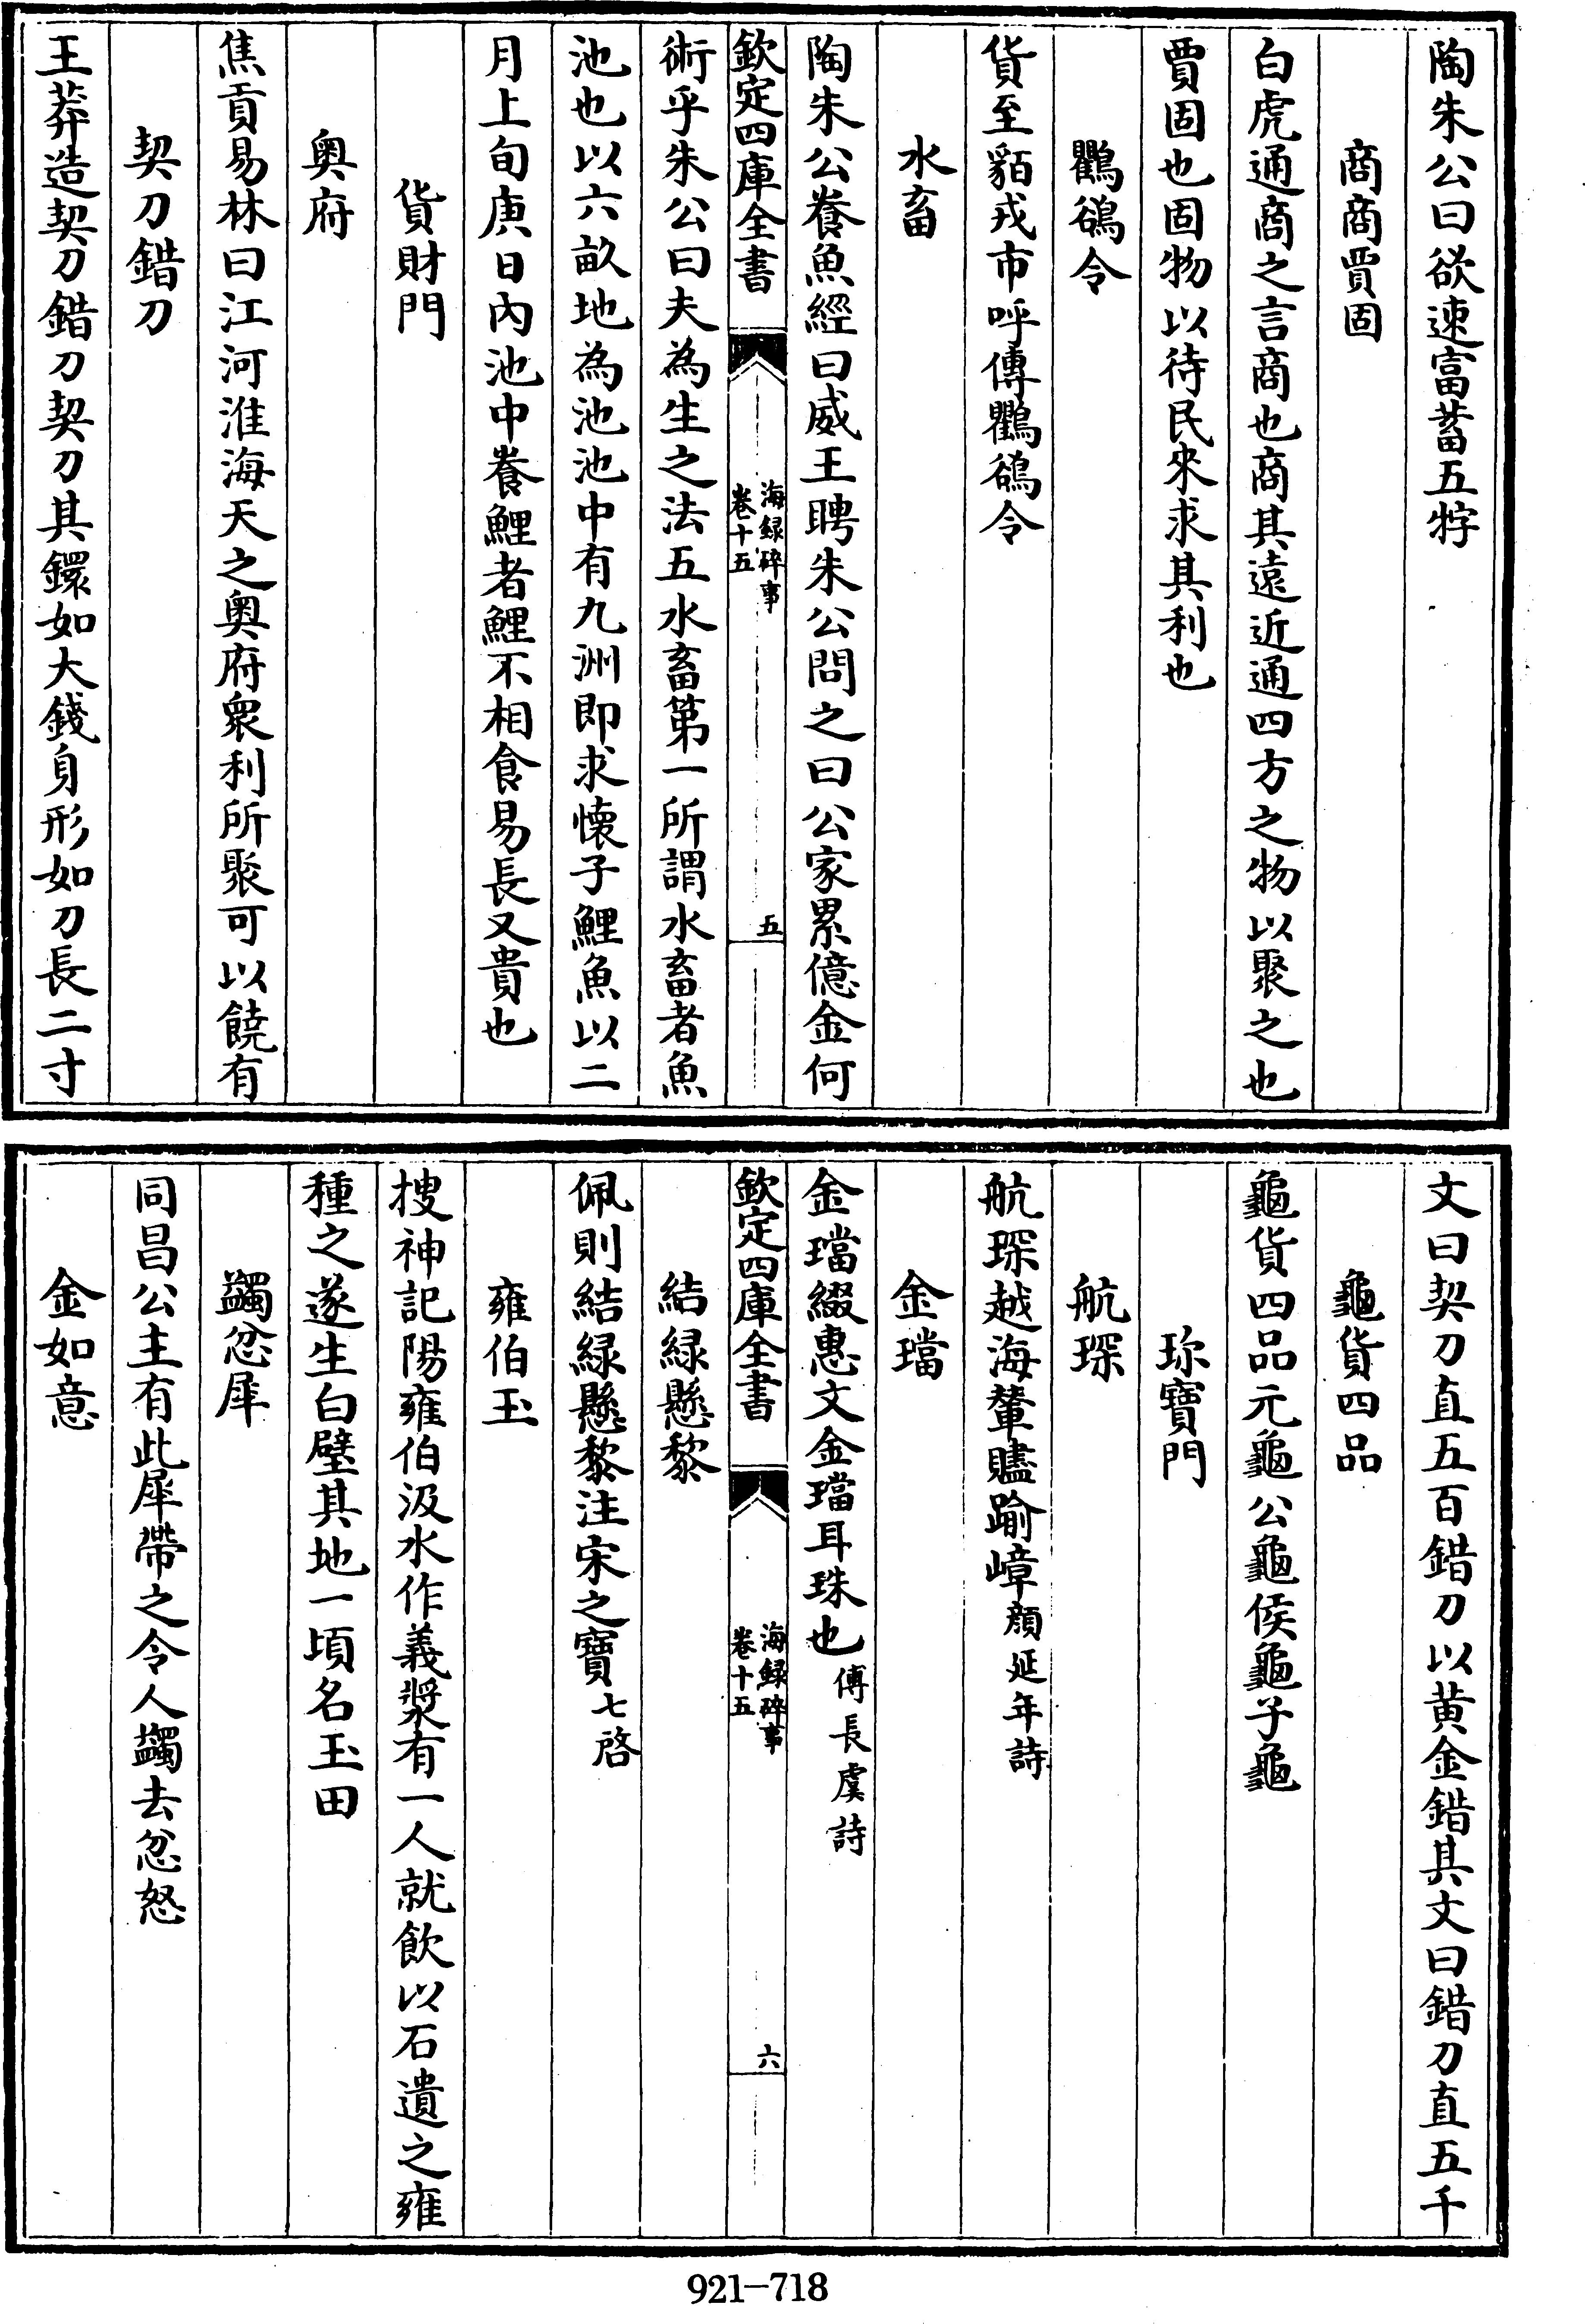 陶朱公曰欲速富蓄五牸
商商賈固
白虎通商之言商也商其遠近通四方之物以聚之也
賈固也固物以待民來求其利也
鸜鵒令
貨至貊戎市呼傳鸜鵒令
水畜
陶朱公養魚經曰威王聘朱公問之曰公家累億金何
欽定四庫全書
海録碎事
卷十五
五
術乎朱公曰夫為生之法五水畜第一所謂水畜者魚
池也以六畝地為池池中有九洲即求懷子鯉魚以二
月上旬庚日內池中養鯉者鯉不相食易長又貴也
貨財門
奥府
焦貢易林曰江河淮海天之奥府衆利所聚可以饒有
契刀錯刀
王莽造契刀錯刀契刀其鐶如大錢身形如刀長二寸
文曰契刀直五百錯刀以黄金錯其文曰錯刀直五千
龜貨四品
龜貨四品元龜公龜侯龜子龜
珎寶門
航琛
航琛越海輦賮踰嶂顔延年詩
金璫
金璫綴惠文金璫耳珠也傅長虞詩
欽定四庫全書
海録碎事
卷十五
六
結緑懸黎
佩則結緑懸黎注宋之寶七啓
雍伯玉
搜神記陽雍伯汲水作義漿有一人就飲以石遺之雍
種之遂生白璧其地一頃名玉田
蠲忿犀
同昌公主有此犀帶之令人蠲去忿怒
金如意
921-718